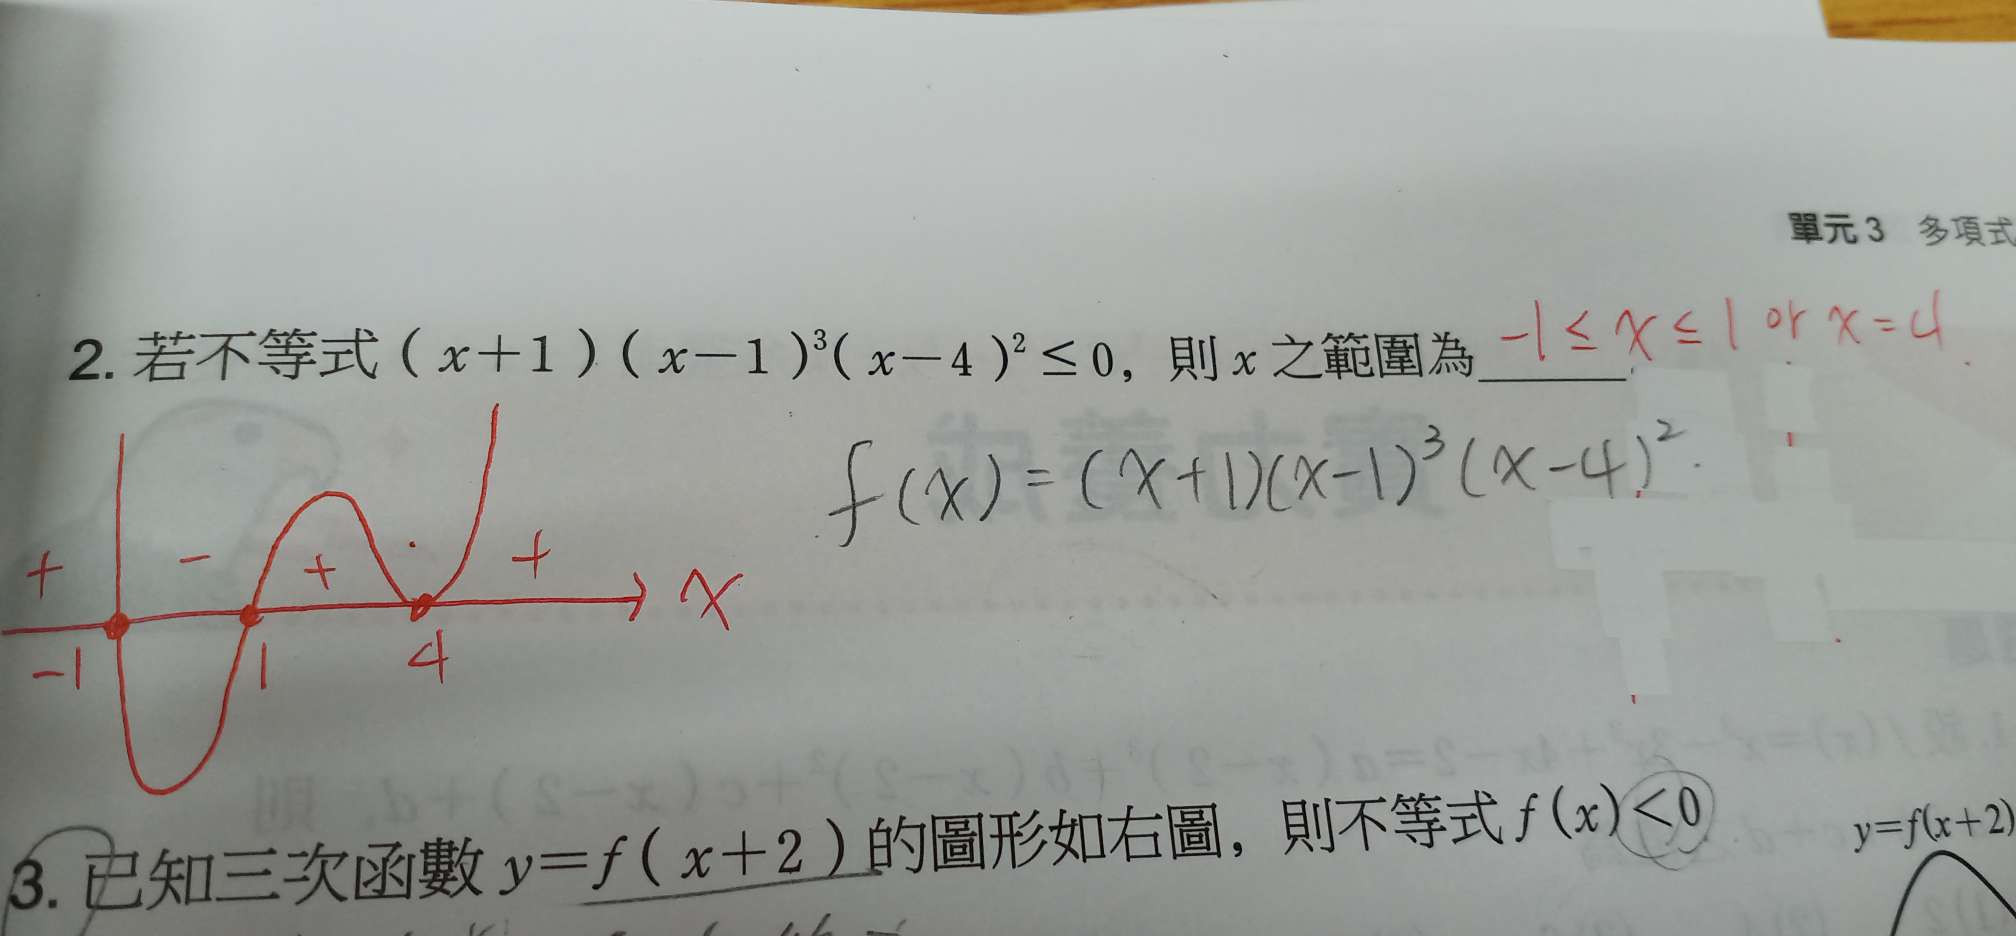 單元 3 多項式
2. 若不等式(x+1)(x−1)³(x−4)²≤0，則 x 之範圍為 -1≤x≤1 or x=4
f(x)=(x+1)(x-1)³(x-4)²
+ - + + x
-1 1 4
3. 已知三次函數 y=f(x+2)的圖形如右圖，則不等式 f(x)<0
y=f(x+2)